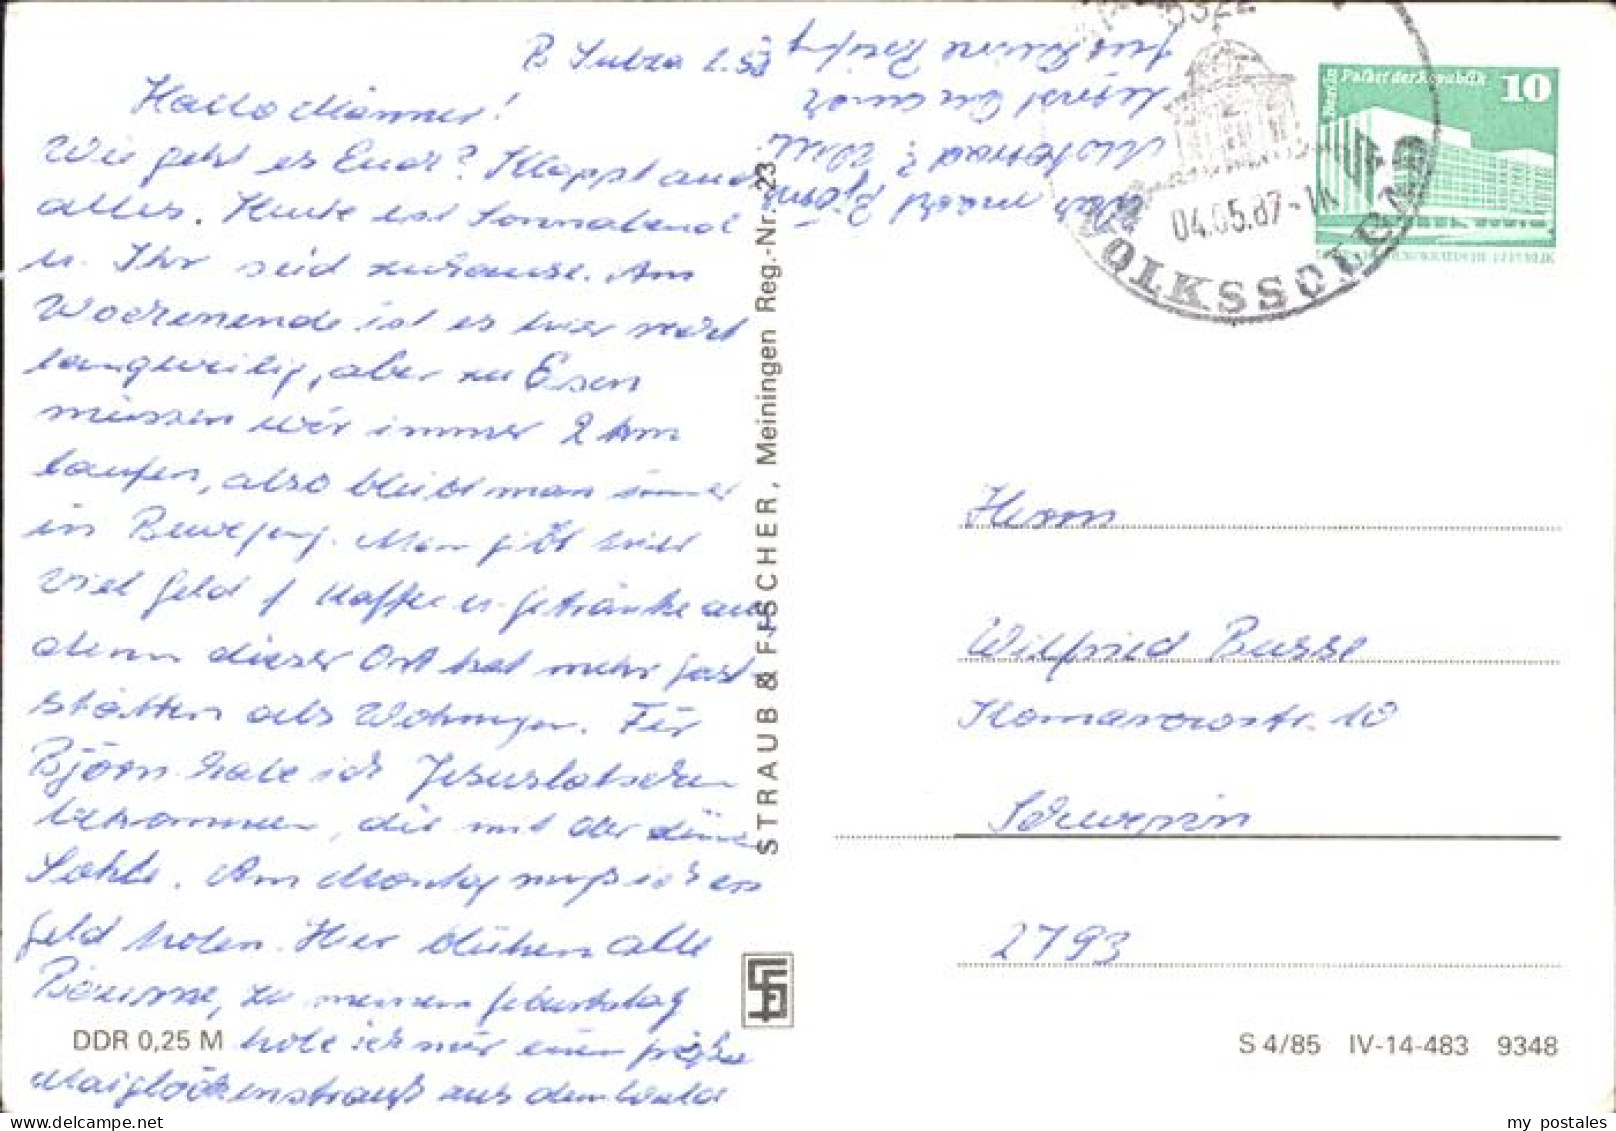 B Sulza 2.5.
Hallo Männer!
Wie geht es Euch? Klappt auch
alles. Heute ist Sonnabend
u. Ihr seid zuhause. Am
Wochenende ist es hier recht
langweilig, aber zu Essen
müssen wir immer 2 km
laufen, also bleibt man immer
in Bewegung. Man gibt hier
viel Geld f. Kaffee u. Getränke aus
denn dieser Ort hat mehr Gast-
stätten als Wohnungen. Für
Björn habe ich Jesuslatschen
bekommen, die mit der dünnen
Sohle. Am Montag muß ich erst
Geld holen. Hier blühen alle
Bäume, zu meinem Geburtstag
hole ich mir einen großen
Maiglöckenstrauß aus dem Walde
Was macht Björns
Motorrad? Willi
Leienst Du auch
Gruß Deine
10
Palast der Republik
DEUTSCHE DEMOKRATISCHE REPUBLIK
04.05.87-1
VOLKSSOLBAD
STRAUB & FISCHER, Meiningen Reg.-Nr. 23
Herrn
Wilfried Busse
Komarowstr. 10
Schwerin
2793
DDR 0,25 M
S 4/85 IV-14-483 9348
my postales